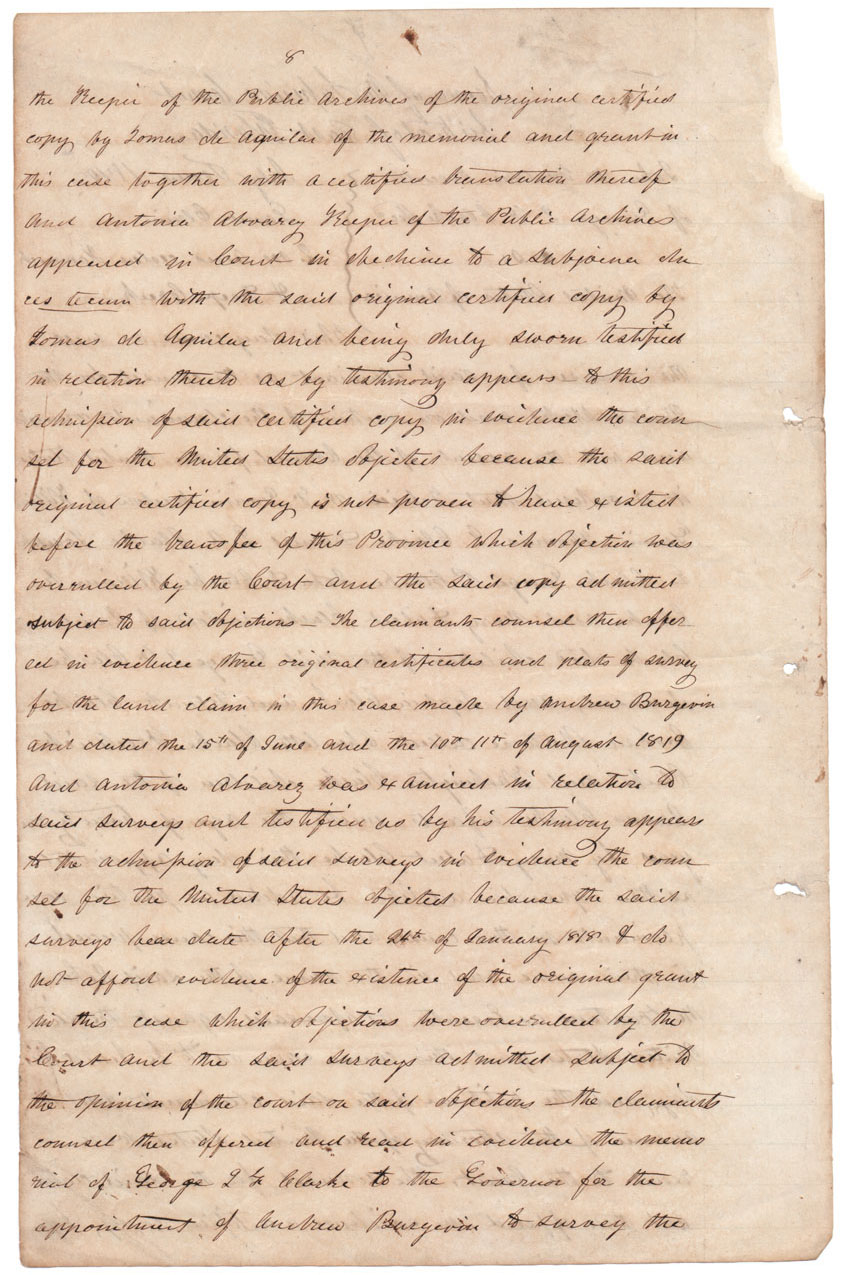 8
the Keeper of the Public Archives of the original certified
copy by Tomas de Aguilar of the memorial and grant in
this case together with a certified translation thereof
And Antonia Alvarez Keeper of the Public Archives
appeared in Court in obedience to a subpoena du
ces tecum with the said original certified copy by
Tomas de Aguilar and being duly sworn testified
in relation thereto as by testimony appears – to this
admission of said certified copy in evidence the coun
sel for the United States objected because the said
original certified copy is not proven to have existed
before the transfer of this Province which objection was
overrulled by the Court and the said copy admitted
subject to said objections – The claimants counsel then offer
ed in evidence three original certificates and plats of survey
for the land claim in this case made by Andrew Burgevin
and dated the 15th of June and the 10th 11th of August 1819
And Antonia Alvarez was examined in relation to
said surveys and testified as by his testimony appears
to the admission of said surveys in evidence the coun
sel for the United States objected because the said
surveys bear date after the 24th of January 1818 & do
not afford evidence of the existence of the original grant
in this case which objections were overrulled by the
Court and the said surveys admitted subject to
the opinion of the court on said objections – the claimants
counsel then offered and read in evidence the memo
rial of George J F Clarke to the Governor for the
appointment of Andrew Burgevin to survey the